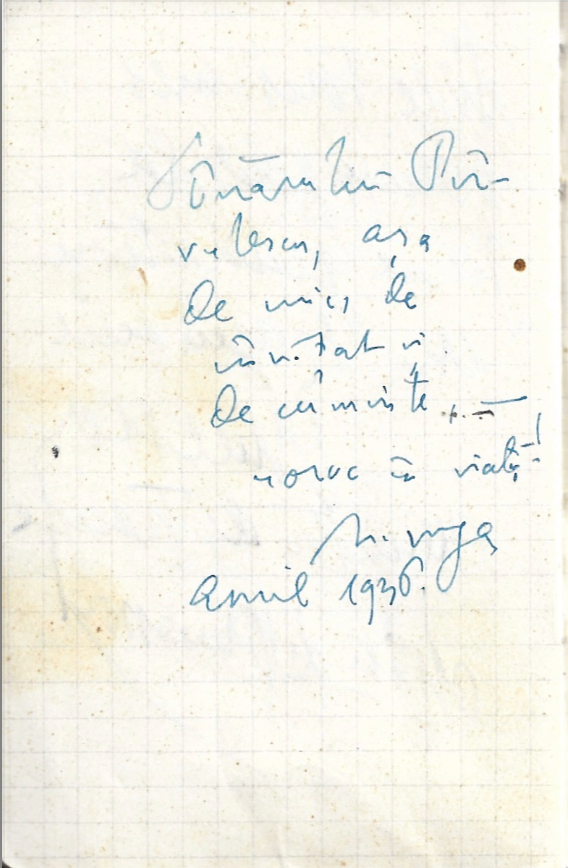 Tînărului Pîr-
vulescu, așa
de mic, de
învățat și
de cuminte, —
noroc în viață!
N. Iorga
April 1936.